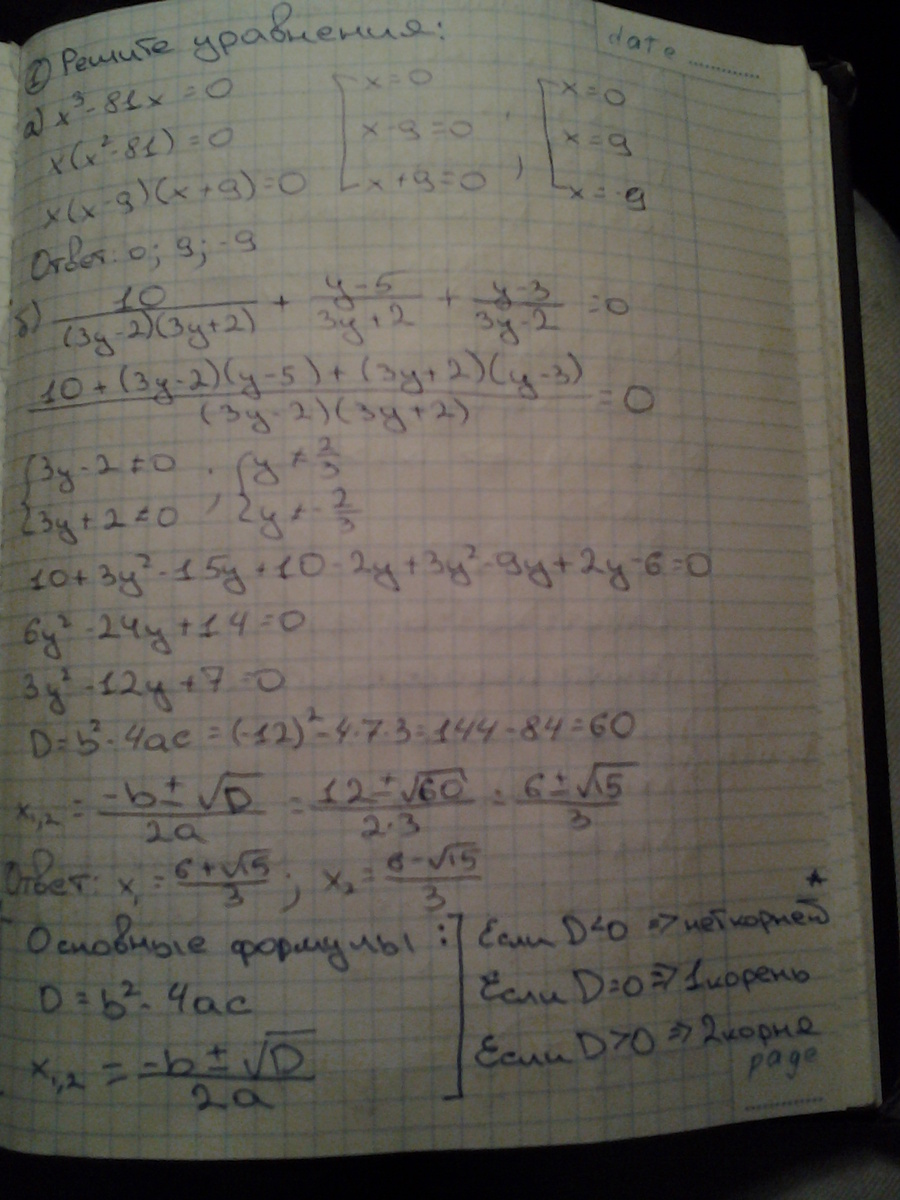 ① Решите уравнения:
date ............
а) x³ - 81x = 0
x(x² - 81) = 0
x(x - 9)(x + 9) = 0
[ x = 0
x - 9 = 0
x + 9 = 0 ,
[ x = 0
x = 9
x = -9
Ответ: 0; 9; -9
б) 10/((3y-2)(3y+2)) + (y-5)/(3y+2) + (y-3)/(3y-2) = 0
(10 + (3y-2)(y-5) + (3y+2)(y-3))/((3y-2)(3y+2)) = 0
{ 3y - 2 ≠ 0
3y + 2 ≠ 0 ;
{ y ≠ 2/3
y ≠ -2/3
10 + 3y² - 15y + 10 - 2y + 3y² - 9y + 2y - 6 = 0
6y² - 24y + 14 = 0
3y² - 12y + 7 = 0
D = b² - 4ac = (-12)² - 4·7·3 = 144 - 84 = 60
x₁,₂ = (-b ± √D)/(2a) = (12 ± √60)/(2·3) = (6 ± √15)/3
Ответ: x₁ = (6 + √15)/3 ; x₂ = (6 - √15)/3
Основные формулы:
D = b² - 4ac
x₁,₂ = (-b ± √D)/(2a)
*
Если D<0 => нет корней
Если D=0 => 1 корень
Если D>0 => 2 корня
page
............